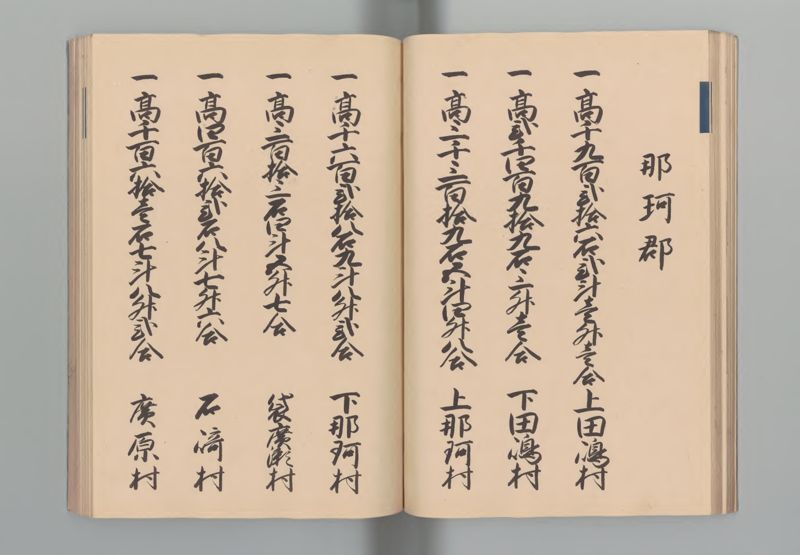 那珂郡
一高千九百弐拾六石弐斗壱升壱合 上田嶋村
一高弐千四百九拾九石三升壱合 下田嶋村
一高三千三百拾九石五斗四升八合 上那珂村
一高千六百弐拾八石九斗八升弐合 下那珂村
一高三百拾三石四斗五升七合 袋廣瀬村
一高四百六拾弐石八斗七升六合 石﨑村
一高千百六拾壱石七斗八升弐合 廣原村